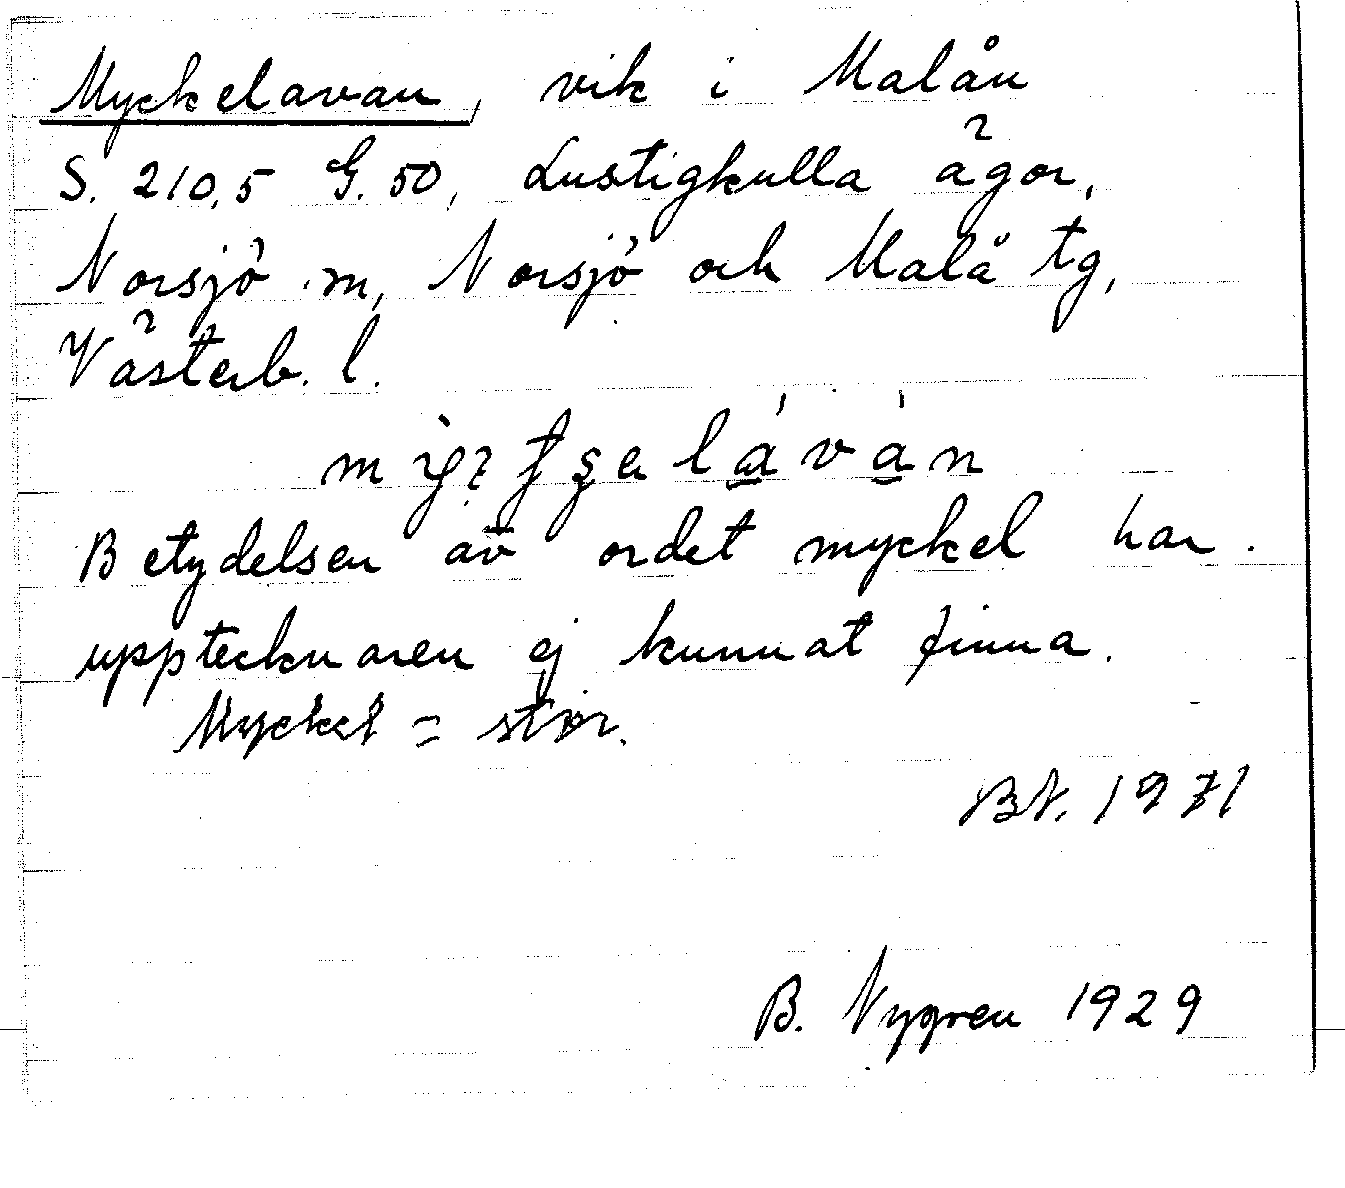 Myckelavan, vik i Malån
S. 210,5 G. 50, Lustigkulla ägor,
Norsjö m, Norsjö och Malå tg,
Västerb. l.
Betydelsen av ordet myckel har
upptecknaren ej kunnat finna.
Myckel = stor.
BN. 1971
B. Nygren 1929